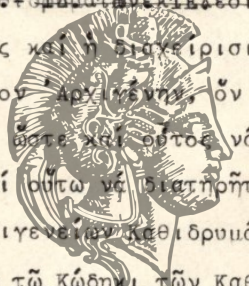 ς καί ἡ διαχείρισι
ον Ἀρχιγένην, ὅν
ὥστε καί οὗτος νά
ί οὕτω νά διατηρῆτ
ιγενείων Καθιδρυμά
τῷ Κώδηκι τῶν Κα